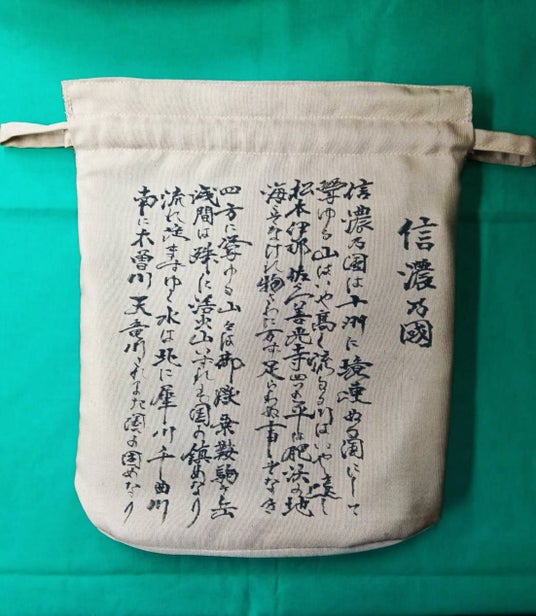 信濃乃國
信濃乃国は十州に境連ぬる国にして
聳ゆる山はいや高く流るる川はいや遠し
松本伊那佐久善光寺四つの平は肥沃の地
海こそなけれ物さわに万ず足らわぬ事ぞなき
四方に聳ゆる山々は御嶽乗鞍駒ヶ岳
浅間は殊に活火山いずれも国の鎮めなり
流れ淀まずゆく水は北に犀川千曲川
南に木曽川天竜川これまた国の固めなり